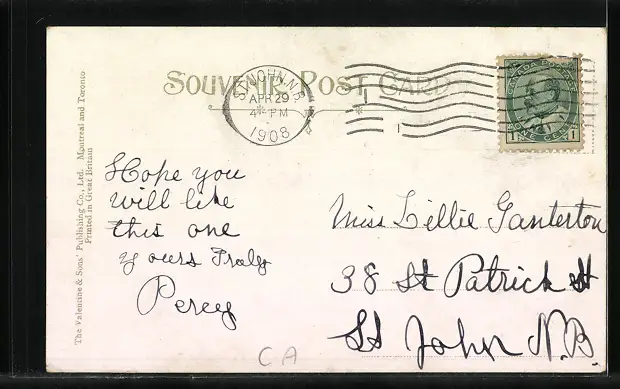 SOUVENIR POST CARD
ST. JOHN. N.B.
APR 29
4 - PM
1908
CANADA POSTAGE
ONE CENT
1
The Valentine & Sons' Publishing Co., Ltd. Montreal and Toronto
Printed in Great Britain
Hope you
will like
this one
yours Truly
Percy
Miss Lillie Ganterton
38 St Patrick St
St John N.B.
CA